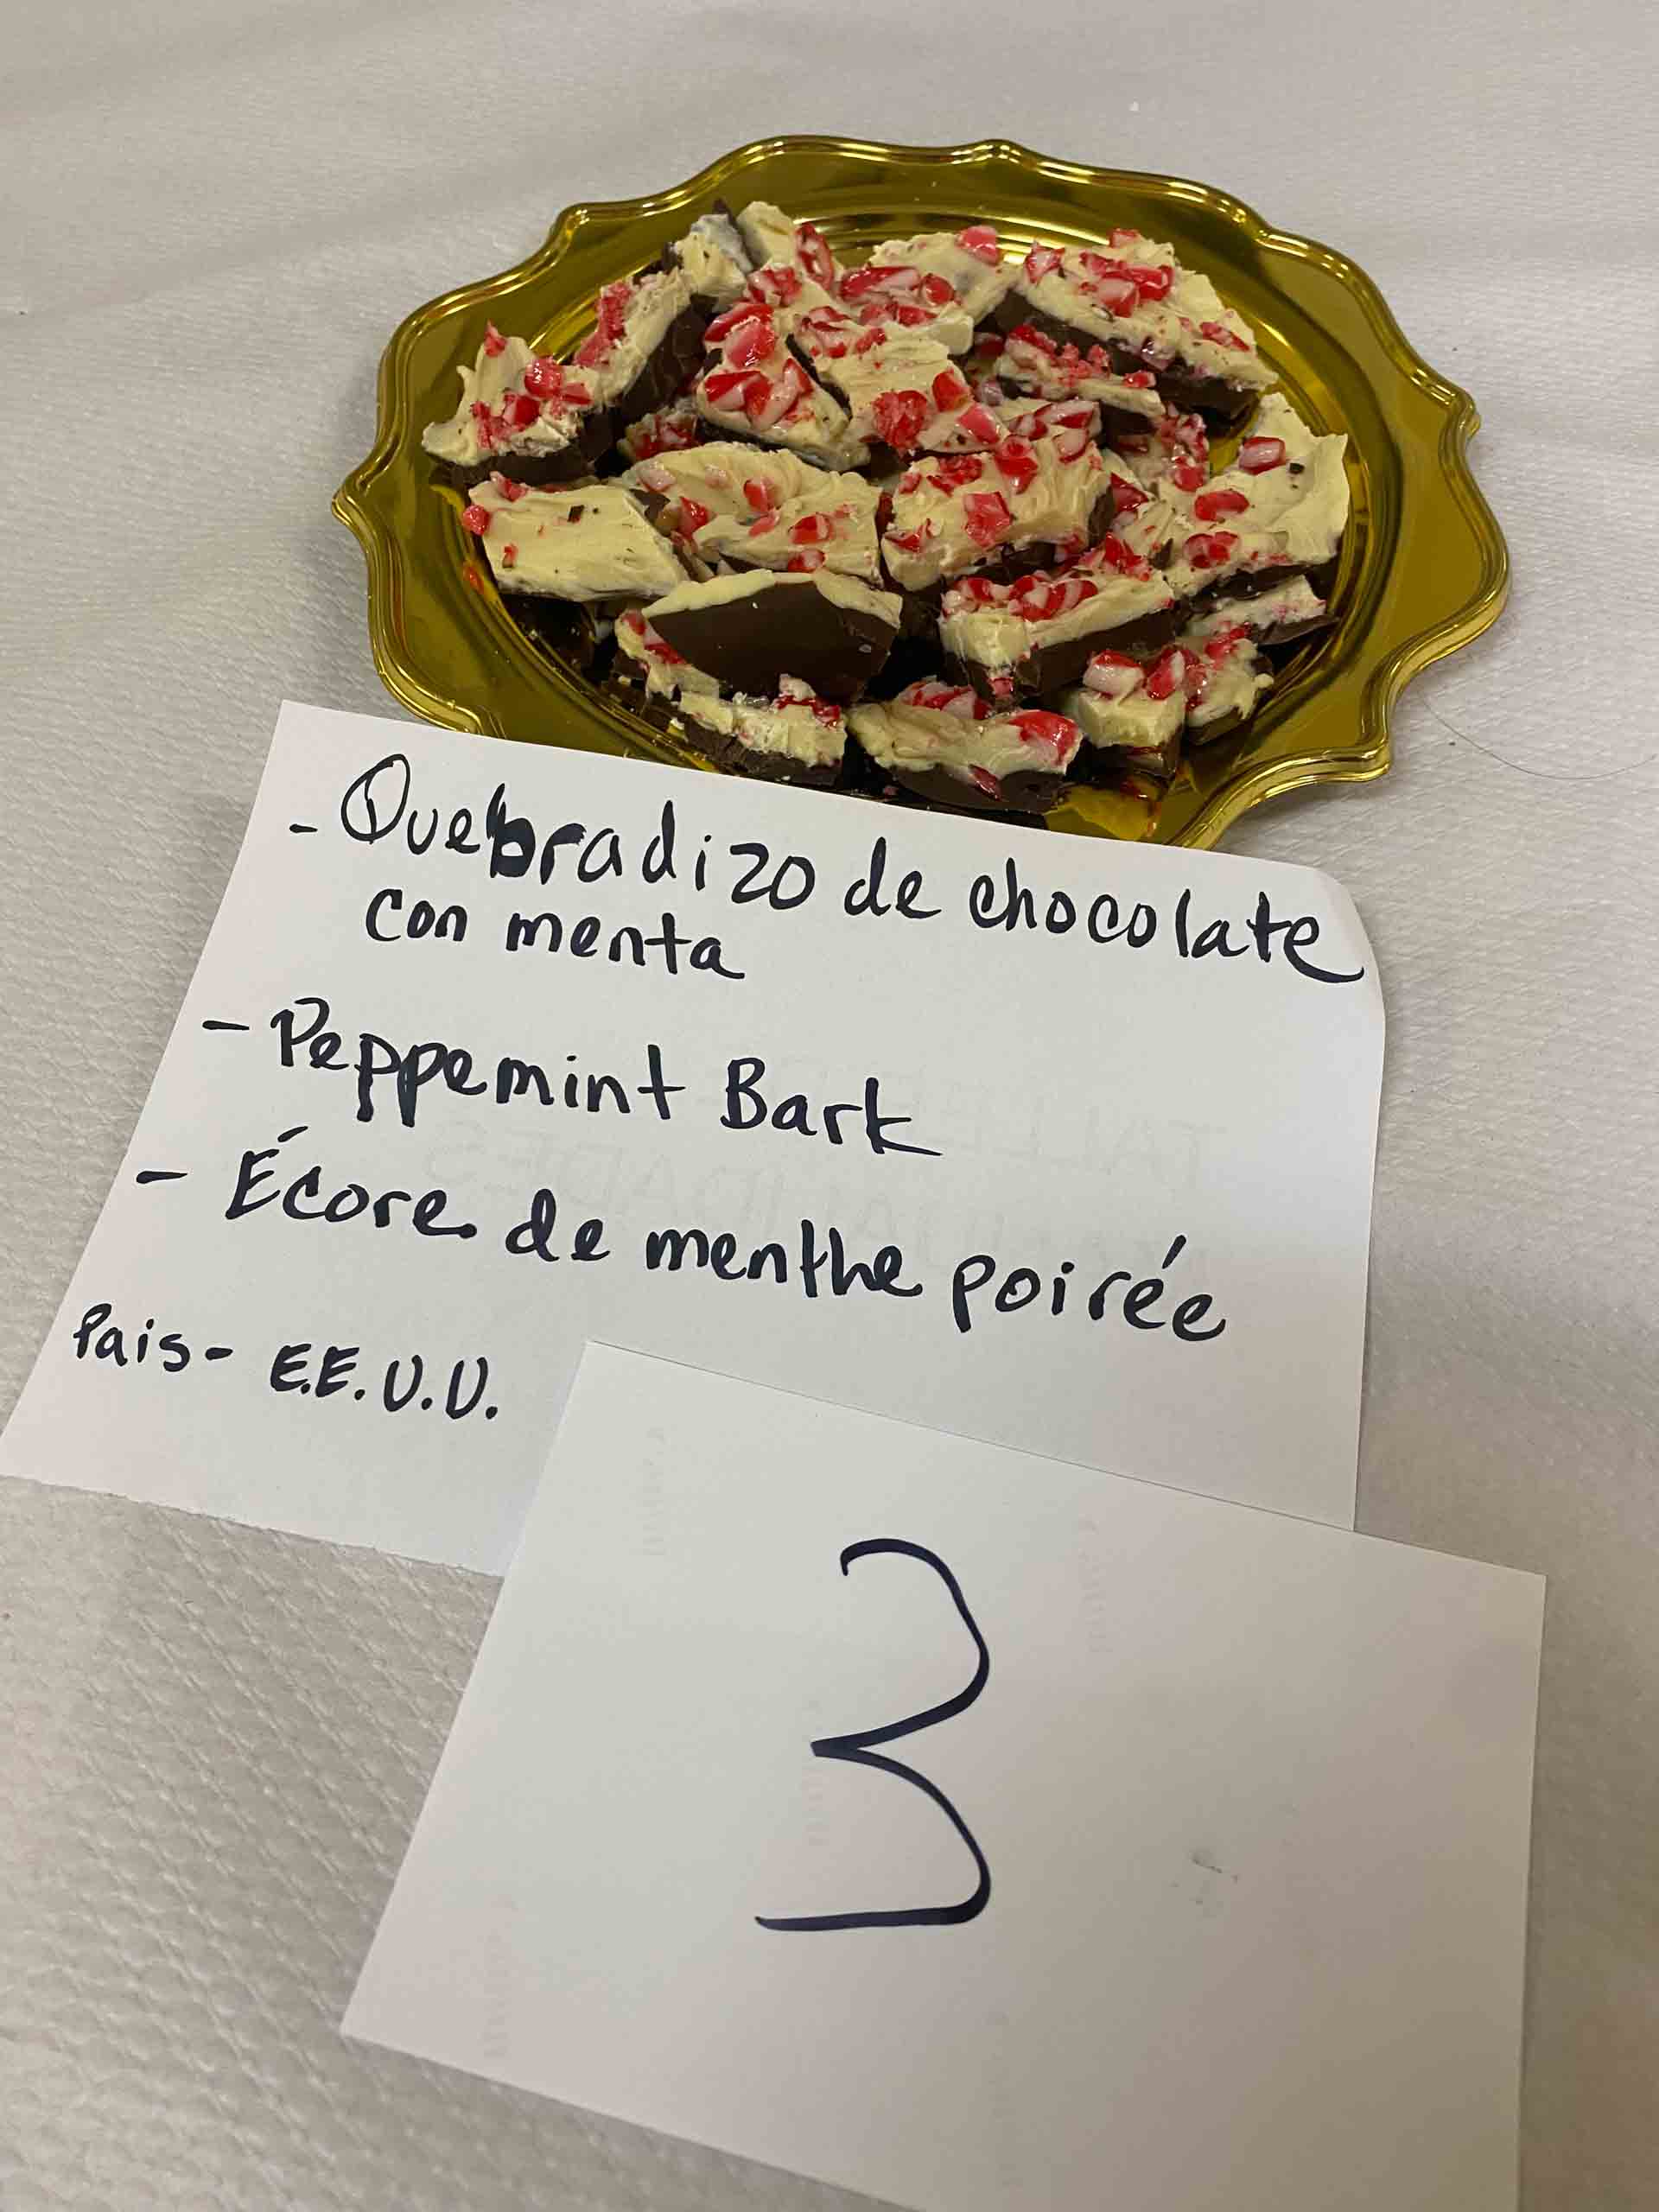 - Quebradizo de chocolate
con menta
- Peppemint Bark
- Écore de menthe poirée
Pais- E.E.U.U.
3